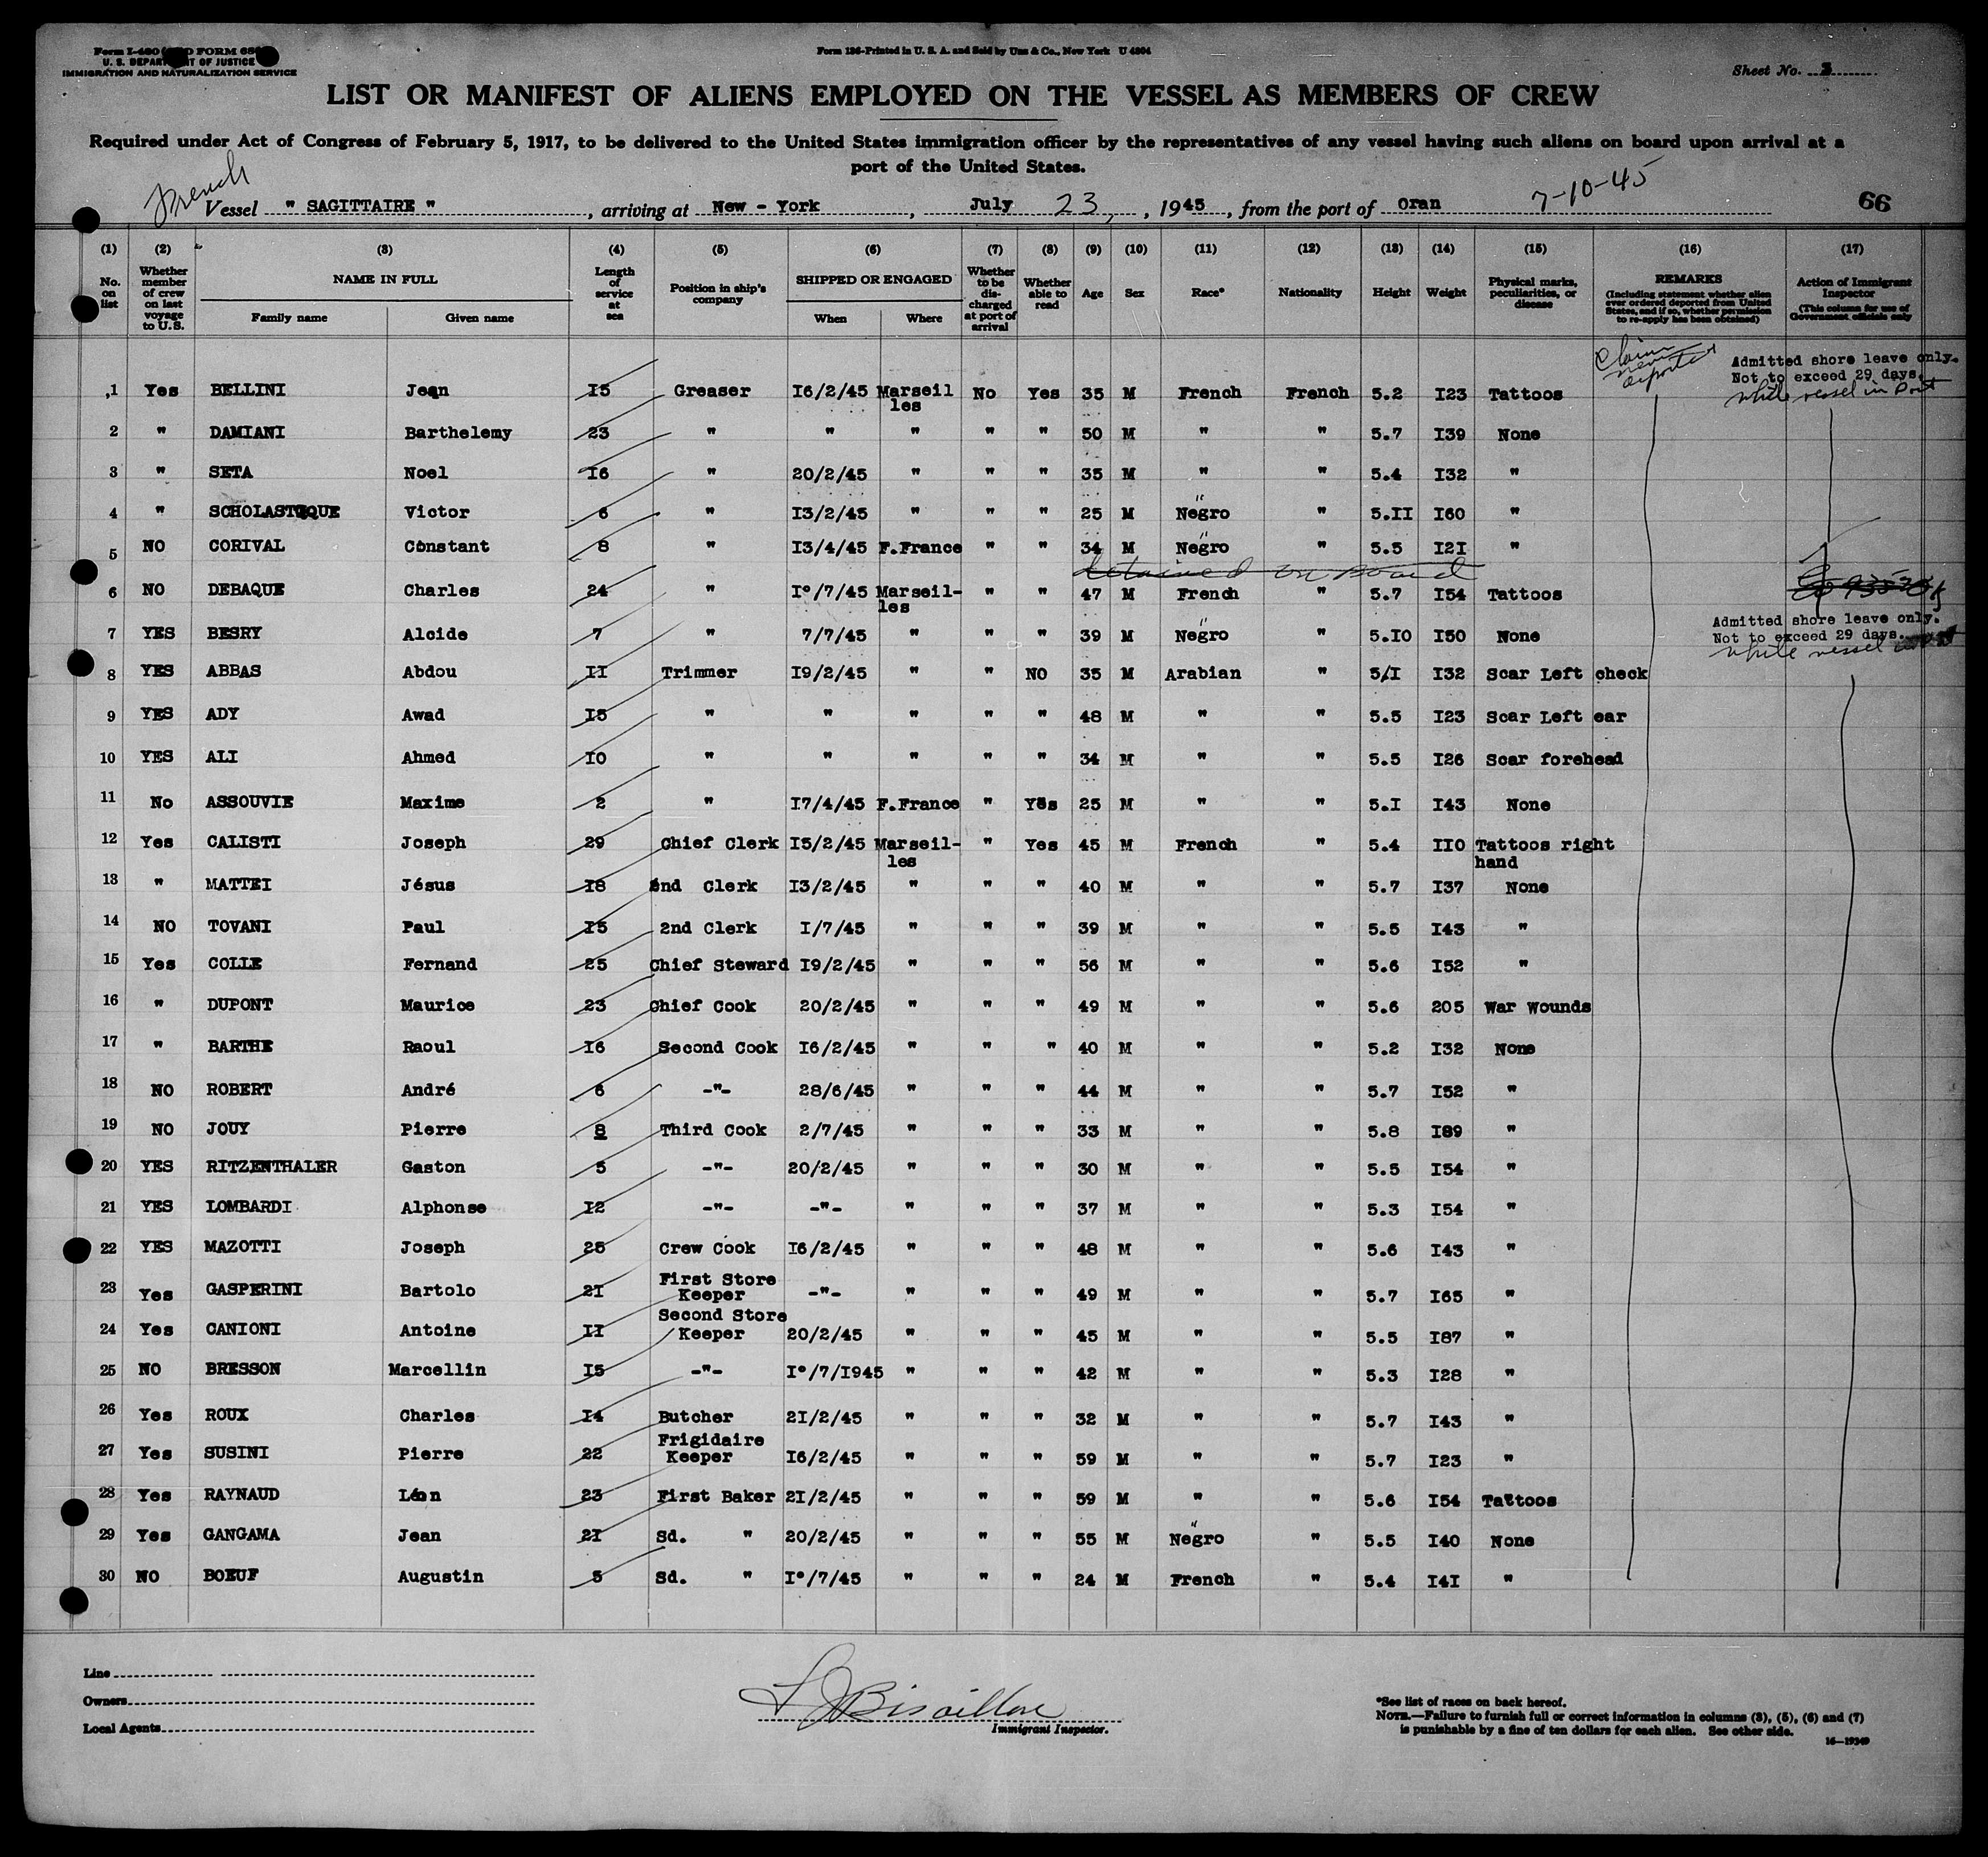 Form I-480
U. S. DEPARTMENT OF JUSTICE
IMMIGRATION AND NATURALIZATION SERVICE
Form 136-Printed in U. S. A. and Sold by Unz & Co., New York U 4804
Sheet No. 3
LIST OR MANIFEST OF ALIENS EMPLOYED ON THE VESSEL AS MEMBERS OF CREW
Required under Act of Congress of February 5, 1917, to be delivered to the United States immigration officer by the representatives of any vessel having such aliens on board upon arrival at a
port of the United States.
French
Vessel " SAGITTAIRE " , arriving at New - York , July 23, , 1945 , from the port of Oran 7-10-45 66
(1) (2) (3) (4) (5) (6) (7) (8) (9) (10) (11) (12) (13) (14) (15) (16) (17)
No. on list Whether member of crew on last voyage to U.S. NAME IN FULL Family name Given name Length of service at sea Position in ship's company SHIPPED OR ENGAGED When Where Whether to be discharged at port of arrival Whether able to read Age Sex Race* Nationality Height Weight Physical marks, peculiarities, or disease REMARKS (Including statement whether alien ever ordered deported from United States, and if so, whether permission to re-apply has been obtained) Action of Immigrant Inspector (This column for use of Government officials only
Claim never deported
Admitted shore leave only.
Not to exceed 29 days.
while vessel in Port
1 Yes BELLINI Jean 15 Greaser I6/2/45 Marseilles No Yes 35 M French French 5.2 I23 Tattoos
2 " DAMIANI Barthelemy 23 " " " " " 50 M " " 5.7 I39 None
3 " SETA Noel I6 " 20/2/45 " " " 35 M " " 5.4 I32 "
4 " SCHOLASTIQUE Victor 6 " I3/2/45 " " " 25 M " Negro " 5.II I60 "
5 NO CORIVAL Cònstant 8 " I3/4/45 F.France " " 34 M " Negro " 5.5 I2I "
detained on board
6 NO DEBAQUE Charles 24 " I°/7/45 Marseil-les " " 47 M French " 5.7 I54 Tattoos
Admitted shore leave only.
Not to exceed 29 days.
while vessel
7 YES BESRY Alcide 7 " 7/7/45 " " " 39 M " Negro " 5.I0 I50 None
8 YES ABBAS Abdou II Trimmer I9/2/45 " " NO 35 M Arabian " 5/I I32 Scar Left check
9 YES ADY Awad I5 " " " " " 48 M " " 5.5 I23 Scar Left ear
10 YES ALI Ahmed I0 " " " " " 34 M " " 5.5 I26 Scar forehead
11 No ASSOUVIE Maxime 2 " I7/4/45 F.France " Yes 25 M " " 5.I I43 None
12 Yes CALISTI Joseph 29 Chief Clerk I5/2/45 Marseil-les " Yes 45 M French " 5.4 II0 Tattoos right hand
13 " MATTEI Jésus I8 2nd Clerk I3/2/45 " " " 40 M " " 5.7 I37 None
14 NO TOVANI Paul I5 2nd Clerk I/7/45 " " " 39 M " " 5.5 I43 "
15 Yes COLLE Fernand 25 Chief Steward I9/2/45 " " " 56 M " " 5.6 I52 "
16 " DUPONT Maurice 23 Chief Cook 20/2/45 " " " 49 M " " 5.6 205 War Wounds
17 " BARTHE Raoul I6 Second Cook I6/2/45 " " " 40 M " " 5.2 I32 None
18 NO ROBERT André 6 -"- 28/6/45 " " " 44 M " " 5.7 I52 "
19 NO JOUY Pierre 8 Third Cook 2/7/45 " " " 33 M " " 5.8 I89 "
20 YES RITZENTHALER Gaston 5 -"- 20/2/45 " " " 30 M " " 5.5 I54 "
21 YES LOMBARDI Alphonse I2 -"- -"- " " " 37 M " " 5.3 I54 "
22 YES MAZOTTI Joseph 25 Crew Cook I6/2/45 " " " 48 M " " 5.6 I43 "
23 Yes GASPERINI Bartolo 2I First Store Keeper -"- " " " 49 M " " 5.7 I65 "
24 Yes CANIONI Antoine II Second Store Keeper 20/2/45 " " " 45 M " " 5.5 I87 "
25 NO BRESSON Marcellin I5 -"- I°/7/I945 " " " 42 M " " 5.3 I28 "
26 Yes ROUX Charles I4 Butcher 2I/2/45 " " " 32 M " " 5.7 I43 "
27 Yes SUSINI Pierre 22 Frigidaire Keeper I6/2/45 " " " 59 M " " 5.7 I23 "
28 Yes RAYNAUD Léon 23 First Baker 2I/2/45 " " " 59 M " " 5.6 I54 Tattoos
29 Yes GANGAMA Jean 2I Sd. " 20/2/45 " " " 55 M " Negro " 5.5 I40 None
30 NO BOEUF Augustin 5 Sd. " I°/7/45 " " " 24 M French " 5.4 I4I "
Line
Owners
Local Agents
L J Bisaillon
Immigrant Inspector.
*See list of races on back hereof.
NOTE.—Failure to furnish full or correct information in columns (3), (5), (6) and (7)
is punishable by a fine of ten dollars for each alien. See other side.
16—19349